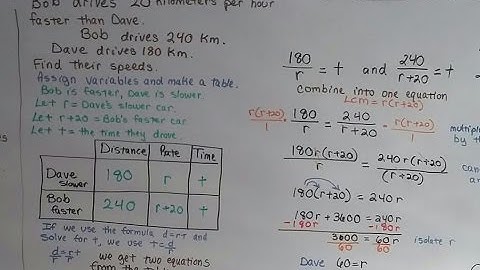 Bob drives 20 kilometers per hour
faster than Dave.
Bob drives 240 Km.
Dave drives 180 Km.
Find their speeds.
Assign variables and make a table.
Bob is faster, Dave is slower.
Let r = Dave's slower car.
Let r+20 = Bob's faster car
Let t = the time they drove
Distance Rate Time
Dave slower 180 r t
Bob faster 240 r+20 t
If we use the formula d=rt and
Solve for t, we use t=d
d=rt
r r
we get two equations
from the
180/r = t and 240/r+20 = t
combine into one equation
Lcm = r(r+20)
r(r+20)/1 · 180/r = 240/r+20 · r(r+20)/1
by
180r(r+20)/r = 240r(r+20)/(r+20)
180(r+20) = 240r
180r + 3600 = 240r
-180r -180r
3600/60 = 60r/60 isolate r
Dave 60=r